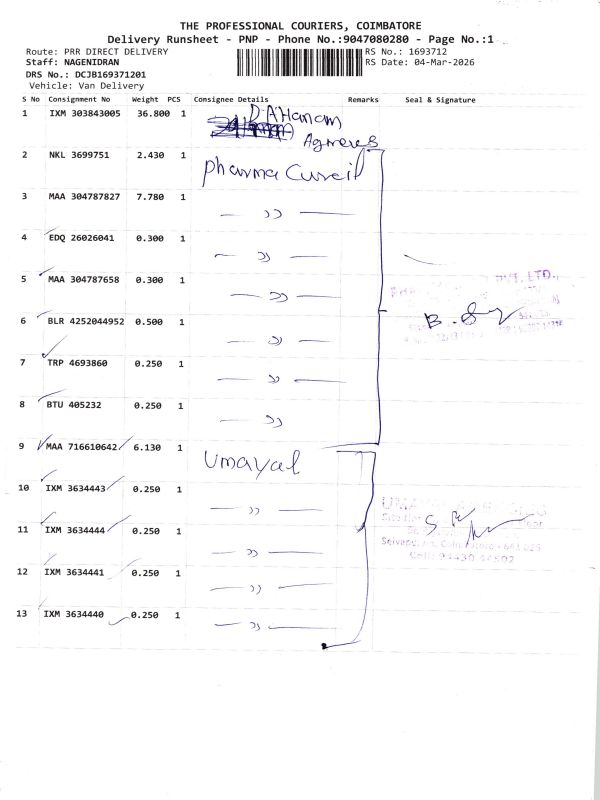 THE PROFESSIONAL COURIERS, COIMBATORE
Delivery Runsheet - PNP - Phone No.:9047080280 - Page No.:1
Route: PRR DIRECT DELIVERY
RS No.: 1693712
Staff: NAGENDIRAN
RS Date: 04-Mar-2026
DRS No.: DCJB169371201
Vehicle: Van Delivery
S No Consignment No Weight PCS Consignee Details Remarks Seal & Signature
1 IXM 303843005 36.800 1
2 NKL 3699751 2.430 1 Pharma Cureil
3 MAA 304787827 7.780 1 — 〃 —
4 EDQ 26026041 0.300 1 — 〃 —
5 MAA 304787658 0.300 1 — 〃 —
PVT. LTD.
6 BLR 4252044952 0.500 1 — 〃 —
7 TRP 4693860 0.250 1 — 〃 —
8 BTU 405232 0.250 1 — 〃 —
9 MAA 716610642 6.130 1 Umayal
10 IXM 3634443 0.250 1 — 〃 —
11 IXM 3634444 0.250 1 — 〃 —
12 IXM 3634441 0.250 1 — 〃 —
13 IXM 3634440 0.250 1 — 〃 —